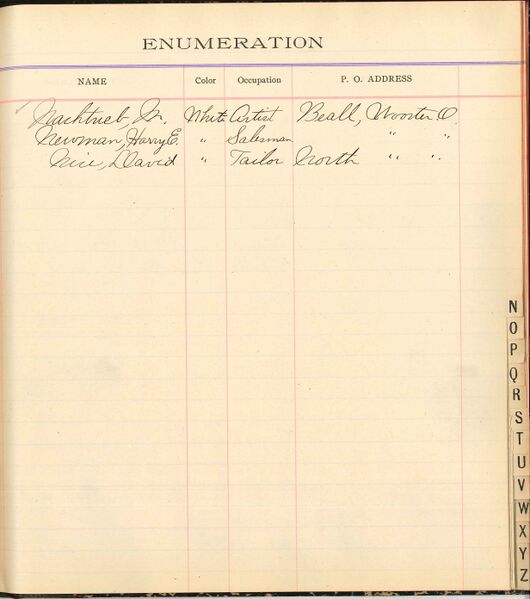 ENUMERATION
NAME Color Occupation P. O. ADDRESS
Nachtrieb, M. White Artist Beall, Wooster O.
Newman, Harry E. " Salesman " "
Nice, David " Tailor North " "
N
O
P
Q
R
S
T
U
V
W
X
Y
Z